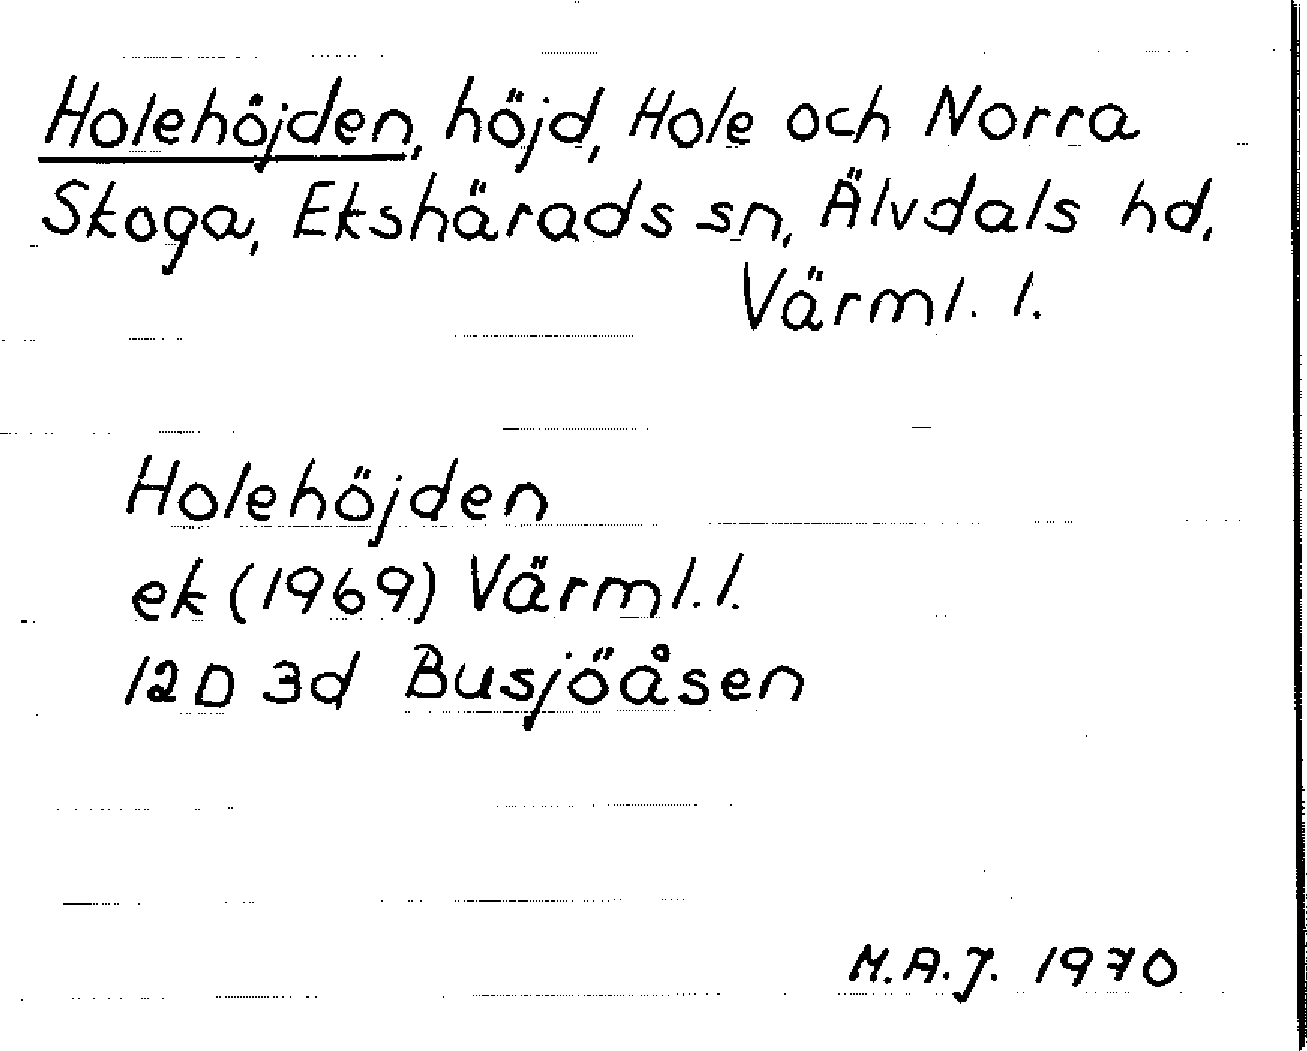 Holehöjden, höjd, Hole och Norra
Skoga, Ekshärads sn, Älvdals hd.
Värml. l.
Holehöjden
ek (1969) Värml. l.
12 D 3d Busjöåsen
M.A.J. 1970